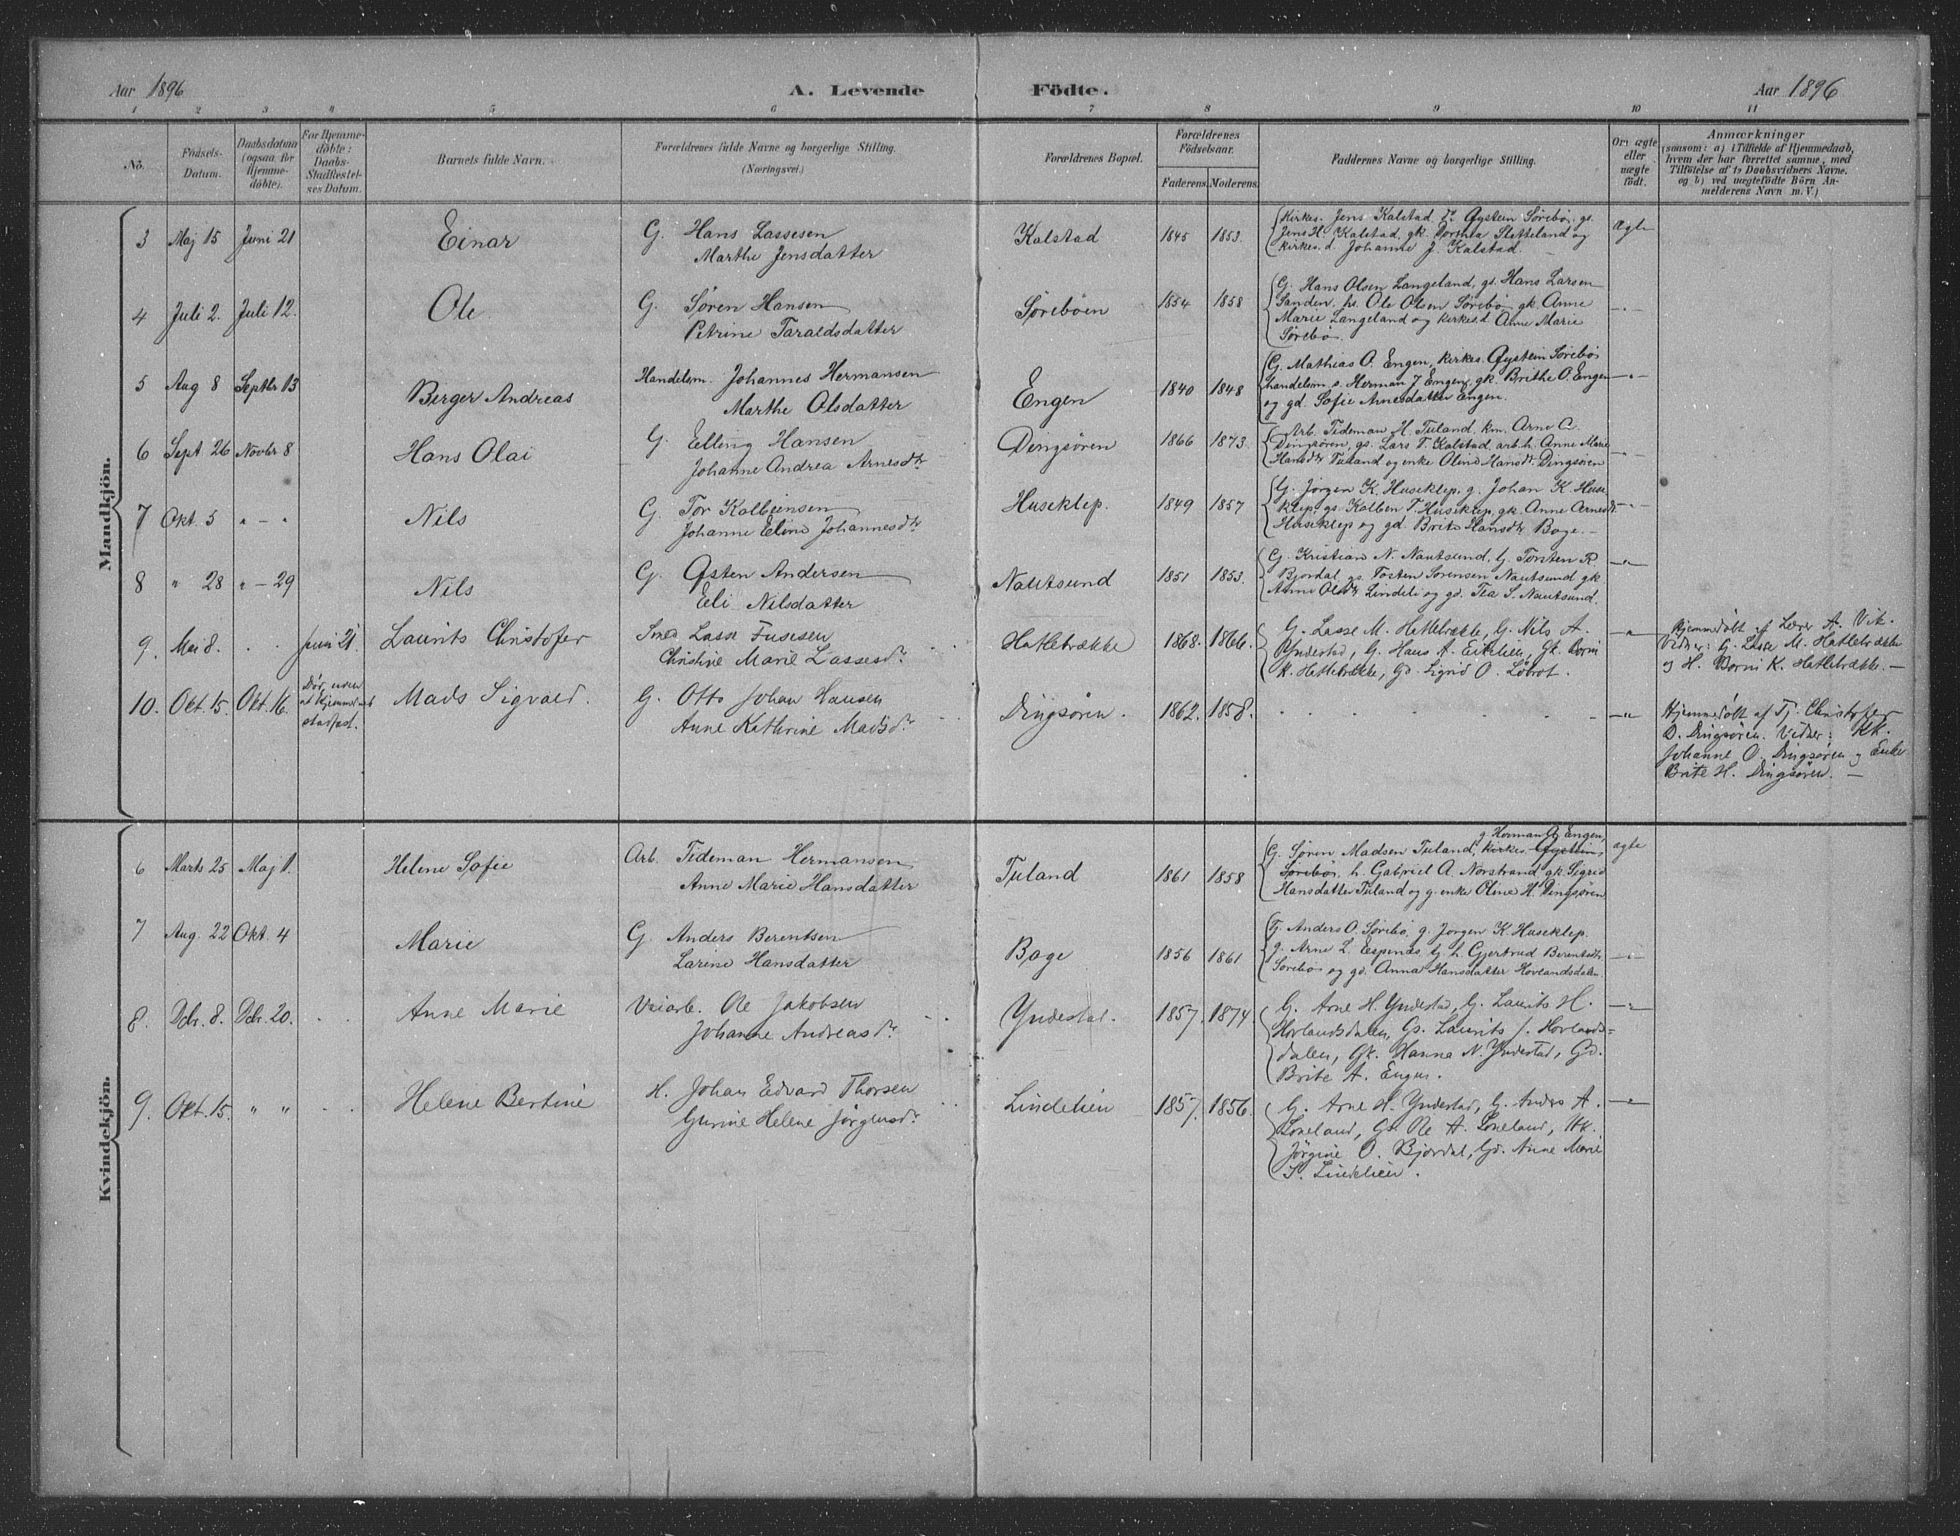 Aar 1896
A. Levende
Födte.
Aar 1896
1 2 3 4 5 6 7 8 9 10 11
No.
Födsels-
Datum.
Daabsdatum
(ogsaa for
Hjemme-
döbte).
For Hjemme-
döbte:
Daabs-
Stadfæstel-
ses Datum.
Barnets fulde Navn.
Forældrenes fulde Navne og borgerlige Stilling.
(Næringsvei.)
Forældrenes Bopæl.
Forældrenes
Födselsaar.
Faderens. Moderens.
Faddernes Navne og borgerlige Stilling.
Om ægte
eller
uægte
födt.
Anmærkninger
(saasom: a) i Tilfælde af Hjemmedaab,
hvem der har forrettet samme, med
Tilföielse af to Daabsvidners Navne,
og b) ved uægtefödte Börn An-
melderens Navn m. V.)
Mandkjön.
3 Maj 15 Juni 21 Einar
G. Hans Lassesen
Marthe Jensdatter
Kalstad 1845 1853
Kirkes. Jens Kalstad, Øystein Sørebø, gs.
Jens H. Kalstad, gk. Dorthea Sletteland og
kirkes. d. Johanne J. Kalstad
Ægte
4 Juli 2. Juli 12. Ole
G. Søren Hansen
Petrine Taraldsdatter
Sørebøen 1854 1858
G. Hans Olsen Langeland, gs. Hans Larsen
Sanden, hs. Ole Olsen Sørebø, gk. Anne
Marie Langeland og kirkes.d. Anne Marie
Sørebø.
— " —
5 Aug 8 Septbr 13 Berger Andreas
Handelsm. Johannes Hermansen
Marthe Olsdatter
Engen 1840 1848
G. Mathias O. Engen, kirkes. Øystein Sørebø,
handelsm. s. Herman J. Engen, gk. Brithe O. Engen
og gd. Sofie Arnesdatter Engen.
— " —
6 Sept 26 Novbr 8 Hans Olai
G. Elling Hansen
Johanne Andrea Arnesdtr
Dingsøren 1866 1873.
Arb. Tideman H. Tuland, km. Arne C.
Dingsøren, gs. Lars T. Kalstad, arb. h. Anne Marie
Hansdtr Tuland og enke Oline Hansdtr Dingsøren
— " —
7 Okt. 5 " — " Nils
G. Tor Kolbeinsen
Johanne Eline Johannesdtr
Huseklep. 1849 1857
G. Jørgen K. Huseklep, g. Johan K. Huse-
klep, gs. Kolben T. Huseklep, gk. Anne Arnesdtr
Huseklep og gd. Brite Hansdtr Boge. —
— " —
8 " 28 " — 29 Nils
G. Østen Andersen
Eli Nilsdatter
Nautsund 1851 1853.
G. Kristian N. Nautsund, G. Torsten R.
Bjordal, gs. Tosten Sørensen Nautsund, gk.
Anne Olsdtr Lindeli og gd. Tea S. Nautsund.
— " —
9. Mai 8. . . Juni 21. Laurits Christofer
Smed Lasse Fusesen
Christine Marie Lassesdr
Hatlebrække 1868. 1866.
G. Lasse M. Hatlebrække, G. Nils A.
Yndestad, G. Hans A. Eikelien, Gk. Borni
K. Hatlebrække, Gd. Sigrid O. Løbrot.
— " —
Hjemmedøbt af Lærer A. Vik.
Vidner: G. Lasse M. Hatlebrække
og H. Borni K. Hatlebrække. —
10. Okt. 15. Okt. 16. Mads Sigvald.
Dør uden
at Hjemmd.
stadfæst.
G. Otto Johan Hansen
Anne Kathrine Madsdr
Dingsøren. 1862. 1858.
— " —
Hjemmedøbt af Tj. Christofer
D. Dingsøren. Vidner: Kk.
Johanne O. Dingsøren og Enke
Brite H. Dingsøren. —
Kvindekjön.
6 Marts 25 Maj 1. Helene Sofie
Arb. Tideman Hermansen
Anne Marie Hansdatter
Tuland 1861 1858
g. Herman J. Engen,
G. Søren Madsen Tuland, kirkes. Øystein
Sørebø, h. Gabriel A. Norstrand, gk. Sigrid
Hansdatter Tuland og g. enke Oline H. Dingsøren
ægte
7 Aug. 22 Okt. 4 Marie
G. Anders Berentsen
Larine Hansdatter
Boge 1856 1861
G. Anders O. Sørebø, g. Jørgen K. Huseklep.
g. Arne L. Espenæs, G. h. Gjertrud Berentsdtr
Sørebø og gd. Anna Hansdatter Hovlandsdalen
— " —
8. Dcbr. 8. Dcbr. 20. Anne Marie
Veiarb. Ole Jakobsen
Johanne Andreasdr
Yndestad. 1857. 1874.
G. Arne H. Yndestad, G. Laurits H.
Hovlandsdalen, Gs. Laurits J. Hovlands-
dalen, Gk. Hanna N. Yndestad, Gd.
Brite A. Engen.
— " —
9. Okt. 15. " " Helene Bertine
H. Johan Edvard Thorsen
Gurine Helene Jørgensdr
Lindelien 1857. 1856.
G. Arne H. Yndestad, G. Anders A.
Loneland, Gs. Ole A. Loneland, Kk.
Jørgine O. Bjordal, Gd. Anne Marie
S. Lindelien.
— " —